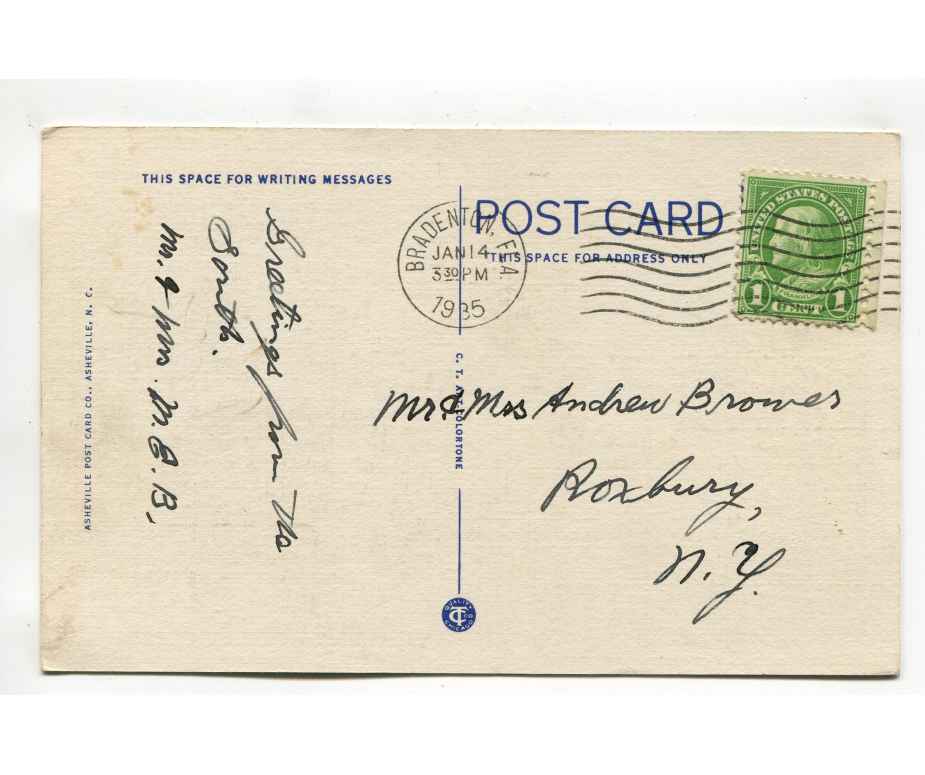 THIS SPACE FOR WRITING MESSAGES
POST CARD
THIS SPACE FOR ADDRESS ONLY
BRADENTON, FLA.
JAN 14
3 30 PM
1935
UNITED STATES POSTAGE
1
1
Greetings from the
South.
Mr. & Mrs. M. E. B.
Mr. & Mrs Andrew Brower
Roxbury,
N. Y.
ASHEVILLE POST CARD CO., ASHEVILLE, N. C.
C. T. ART COLORTONE
QUALITY
CT CO
CHICAGO